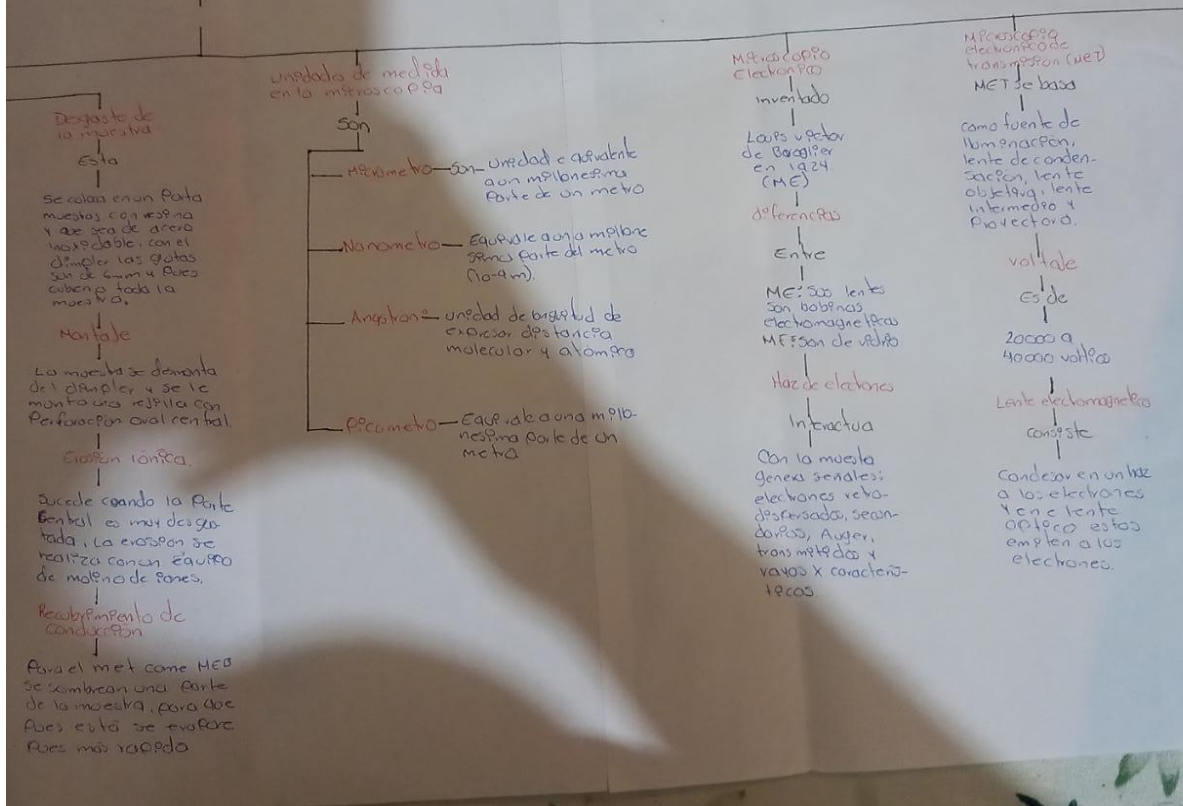 Desgaste de
la muestra
Esta
se colaca en un Porta
muestas con resina
y que sea de acero
inoxedable, con el
dimpler las gotas
son de 6mm y Pues
cubene toda la
muestra.
Montaje
La muestra se demonta
del dimpler y se le
monta una rejilla con
Perforacion oval central.
Erosion iónica.
Sucede cuando la Parte
Central es muy desgas-
tada, La erosion se
realiza con un Equipo
de molino de iones.
Recubrimiento de
conducción
Para el met come MEB
se sombrean una Parte
de la muestra, para que
Pues está se evapore
Pues más rapido
unidades de medida
en la mitroscopia
Son
Micrometro - Son - Unidad equivalente
a un millonesima
Parte de un metro
Nanometro - Equivale a una millone
sima Parte del metro
(10-9 m).
Angstron - unidad de longitud de
expresar distancia
molecular y atómica
Picometro - Equivale a una millo-
nesima Parte de un
metro
Mitroscopio
Electronico
inventado
Louis victor
de Baroglier
en 1924
(ME)
diferencias
Entre
ME: Sus lentes
son bobinas
electromagneticas
ME: Son de vidrio
Haz de electrones
Interactua
Con la muesta
genera señales:
electrones retro-
dispersados, secun-
darios, Auger,
transmitidos y
rayos X caracteris-
ticas
Microscopia
electronico de
transmision (MET)
MET se basa
como fuente de
iluminación,
lente de conden-
sación, lente
objetiva, lente
intermedio y
Proyectora.
voltaje
Es de
20000 a
40000 voltios
Lente electromagnetico
consiste
Condesar en un haz
a los electrones
Y en e lente
optico estos
emplen a los
electrones.